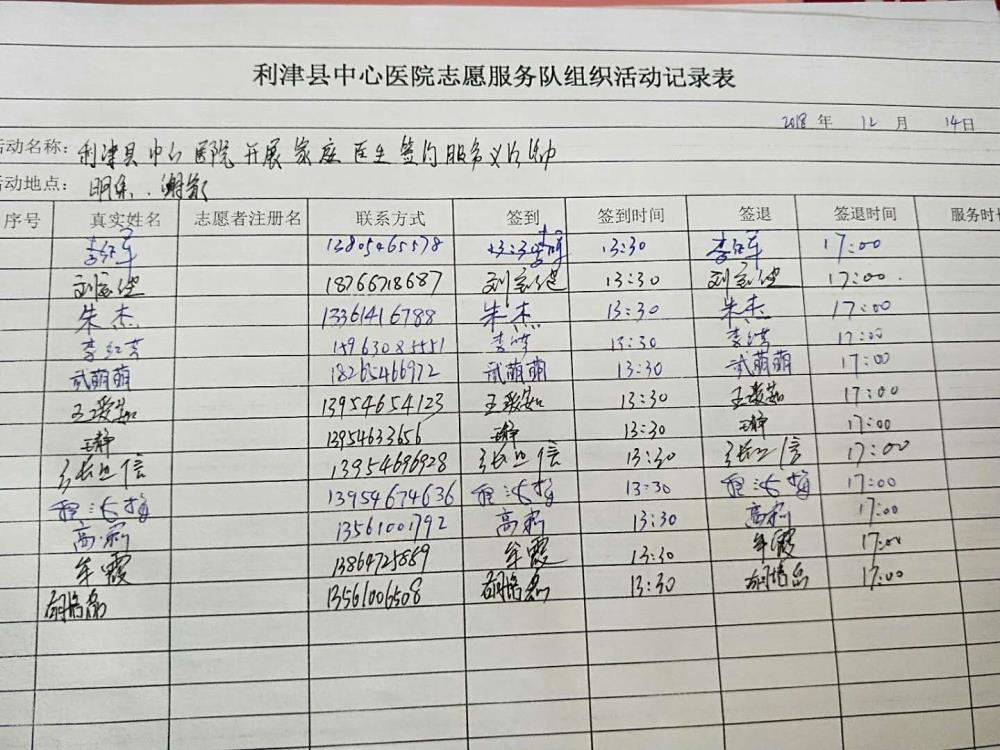 利津县中心医院志愿服务队组织活动记录表
2018 年 12 月 14日
活动名称: 利津县中心医院开展家庭医生签约服务义诊活动
活动地点: 明集、谢家
序号 真实姓名 志愿者注册名 联系方式 签到 签到时间 签退 签退时间 服务时
13805465578 13:30 17:00
18766718687 13:30 17:00
朱杰 13361416788 朱杰 13:30 朱杰 17:00
李红芳 15963085551 13:30 17:00
武萌萌 18265466972 武萌萌 13:30 武萌萌 17:00
王爱茹 13954654123 王爱茹 13:30 王爱茹 17:00
王静 13954633656 王静 13:30 王静 17:00
13954696928 13:30 17:00
程 梅 13954674636 程 梅 13:30 程 梅 17:00
高莉 13561001792 高莉 13:30 高莉 17:00
牟霞 13864725889 牟霞 13:30 牟霞 17:00
胡培磊 13561006508 胡培磊 13:30 胡培磊 17:00